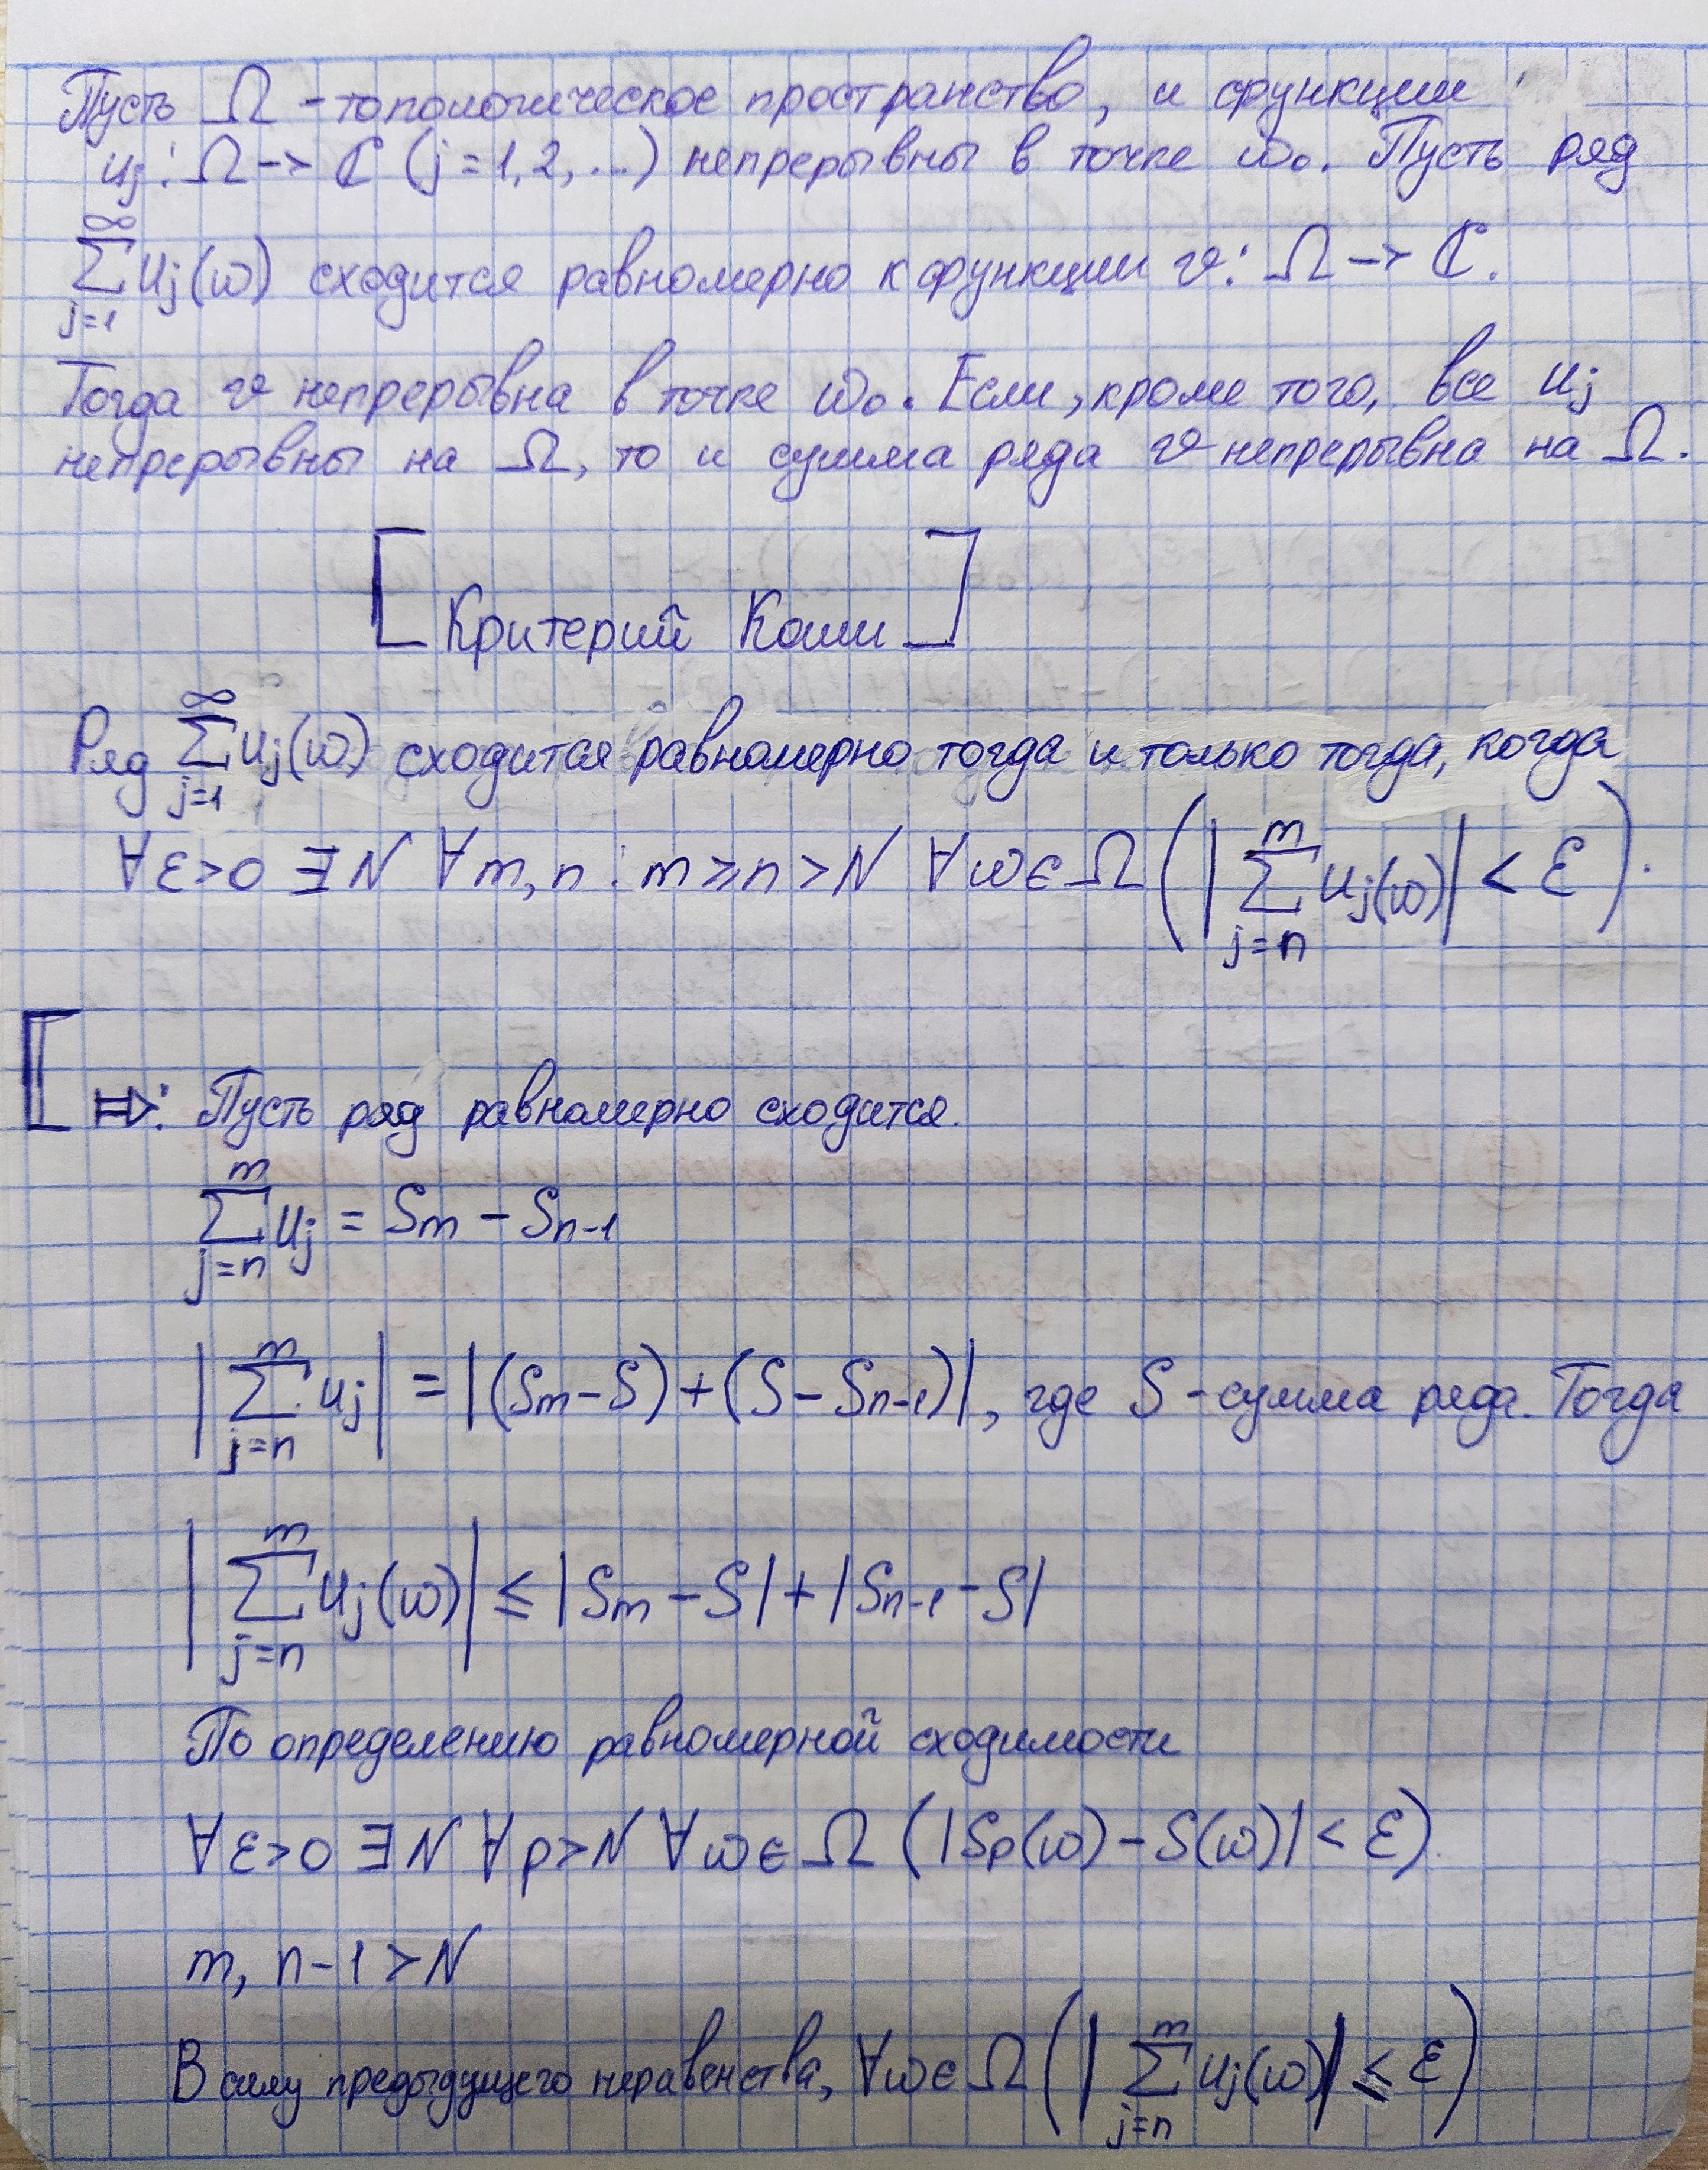 Пусть Ω - топологическое пространство, и функции
uj : Ω -> ℂ (j = 1, 2, ...) непрерывны в точке ω₀. Пусть ряд
∑_{j=1}^{∞} uj(ω) сходится равномерно к функции v: Ω -> ℂ.
Тогда v непрерывна в точке ω₀. Если, кроме того, все uj
непрерывны на Ω, то и сумма ряда v непрерывна на Ω.
[Критерий Коши]
Ряд ∑_{j=1}^{∞} uj(ω) сходится равномерно тогда и только тогда, когда
∀ε>0 ∃N ∀m, n : m ⩾ n > N ∀ω∈Ω (|∑_{j=n}^{m} uj(ω)| < ε).
[ ⇒: Пусть ряд равномерно сходится.
∑_{j=n}^{m} uj = Sm - Sn-1
|∑_{j=n}^{m} uj| = |(Sm - S) + (S - Sn-1)|, где S - сумма ряда. Тогда
|∑_{j=n}^{m} uj(ω)| ≤ |Sm - S| + |Sn-1 - S|
По определению равномерной сходимости
∀ε>0 ∃N ∀p>N ∀ω∈Ω (|Sp(ω) - S(ω)| < ε)
m, n-1 > N
В силу предыдущего неравенства, ∀ω∈Ω (|∑_{j=n}^{m} uj(ω)| ≤ ε)